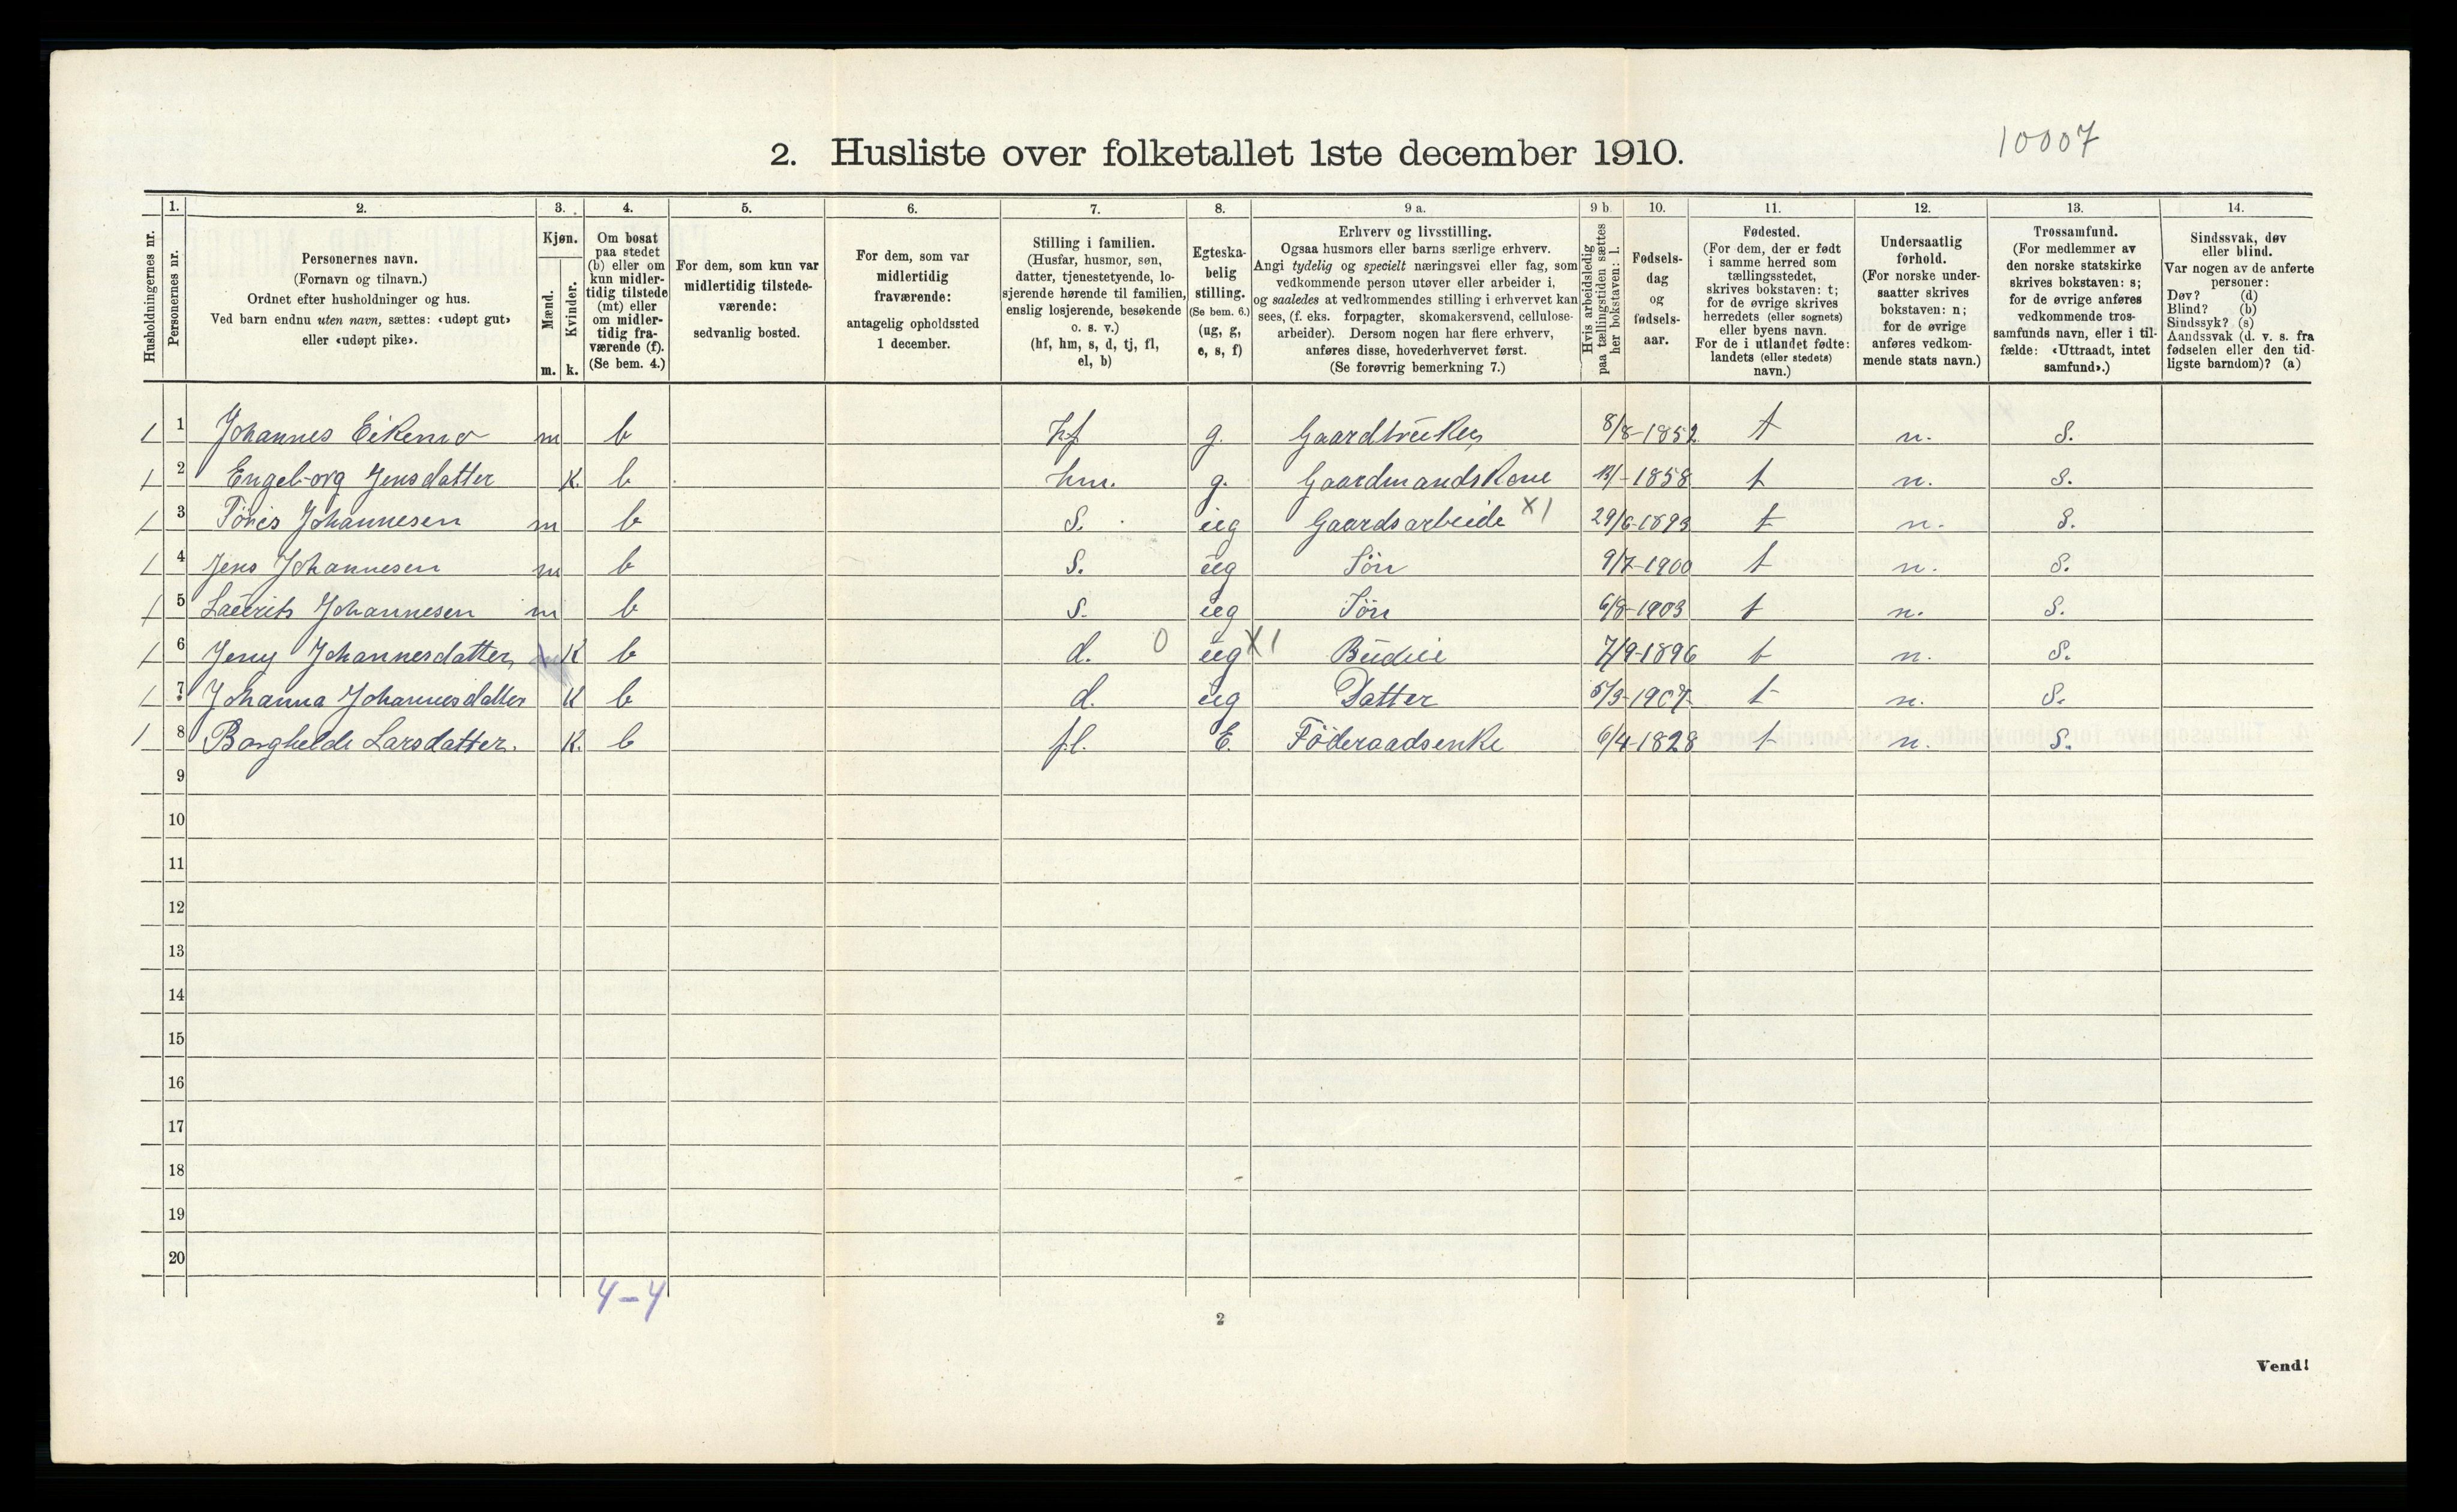 10007
2. Husliste over folketallet 1ste december 1910.
Husholdningernes nr.
1. Personernes nr.
2. Personernes navn.
(Fornavn og tilnavn.)
Ordnet efter husholdninger og hus.
Ved barn endnu uten navn, sættes: «udøpt gut»
eller «udøpt pike».
3. Kjøn.
Mænd. Kvinder.
m. k.
4. Om bosat
paa stedet
(b) eller om
kun midler-
tidig tilstede
(mt) eller
om midler-
tidig fra-
værende (f).
(Se bem. 4.)
5. For dem, som kun var
midlertidig tilstede-
værende:
sedvanlig bosted.
6. For dem, som var
midlertidig
fraværende:
antagelig opholdssted
1 december.
7. Stilling i familien.
(Husfar, husmor, søn,
datter, tjenestetyende, lo-
sjerende hørende til familien,
enslig losjerende, besøkende
o. s. v.)
(hf, hm, s, d, tj, fl,
el, b)
8. Egteska-
belig
stilling.
(Se bem. 6.)
(ug, g,
e, s, f)
9 a. Erhverv og livsstilling.
Ogsaa husmors eller barns særlige erhverv.
Angi tydelig og specielt næringsvei eller fag, som
vedkommende person utøver eller arbeider i,
og saaledes at vedkommendes stilling i erhvervet kan
sees, (f. eks. forpagter, skomakersvend, cellulose-
arbeider). Dersom nogen har flere erhverv,
anføres disse, hovederhvervet først.
(Se forøvrig bemerkning 7.)
9 b. Hvis arbeidsledig
paa tællingstiden sættes
her bokstaven: l.
10. Fødsels-
dag
og
fødsels-
aar.
11. Fødested.
(For dem, der er født
i samme herred som
tællingsstedet,
skrives bokstaven: t;
for de øvrige skrives
herredets (eller sognets)
eller byens navn.
For de i utlandet fødte:
landets (eller stedets)
navn.)
12. Undersaatlig
forhold.
(For norske under-
saatter skrives
bokstaven: n;
for de øvrige
anføres vedkom-
mende stats navn.)
13. Trossamfund.
(For medlemmer av
den norske statskirke
skrives bokstaven: s;
for de øvrige anføres
vedkommende tros-
samfunds navn, eller i til-
fælde: «Uttraadt, intet
samfund».)
14. Sindssvak, døv
eller blind.
Var nogen av de anførte
personer:
Døv? (d)
Blind? (b)
Sindssyk? (s)
Aandssvak (d. v. s. fra
fødselen eller den tid-
ligste barndom)? (a)
1 1 Johannes Eikemo m b hf g. Gaardbruker 8/8-1852 t n. S.
1 2 Engeborg Jensdatter K. b hm. g. Gaardmandskone -1858 t n. S.
1 3 Johannesen m b S. ug Gaardsarbeide X1 29/6-1893 t n. S.
1 4 Jens Johannesen m b S. ug Sön 9/7-1900 t n. S.
1 5 Laurits Johannesen m b S. ug Sön 6/8-1903 t n. S.
1 6 Jeny Johannesdatter K b d. 0 ug X1 Budeie 7/9-1896 t n. S.
1 7 Johanna Johannesdatter K b d. ug Datter 5/3-1907 t n. S.
1 8 Borghelde Larsdatter. K. b fl. E. Föderaadsenke 6/4-1828 t n. S.
9
10
11
12
13
14
15
16
17
18
19
20
4-4
2
Vend!